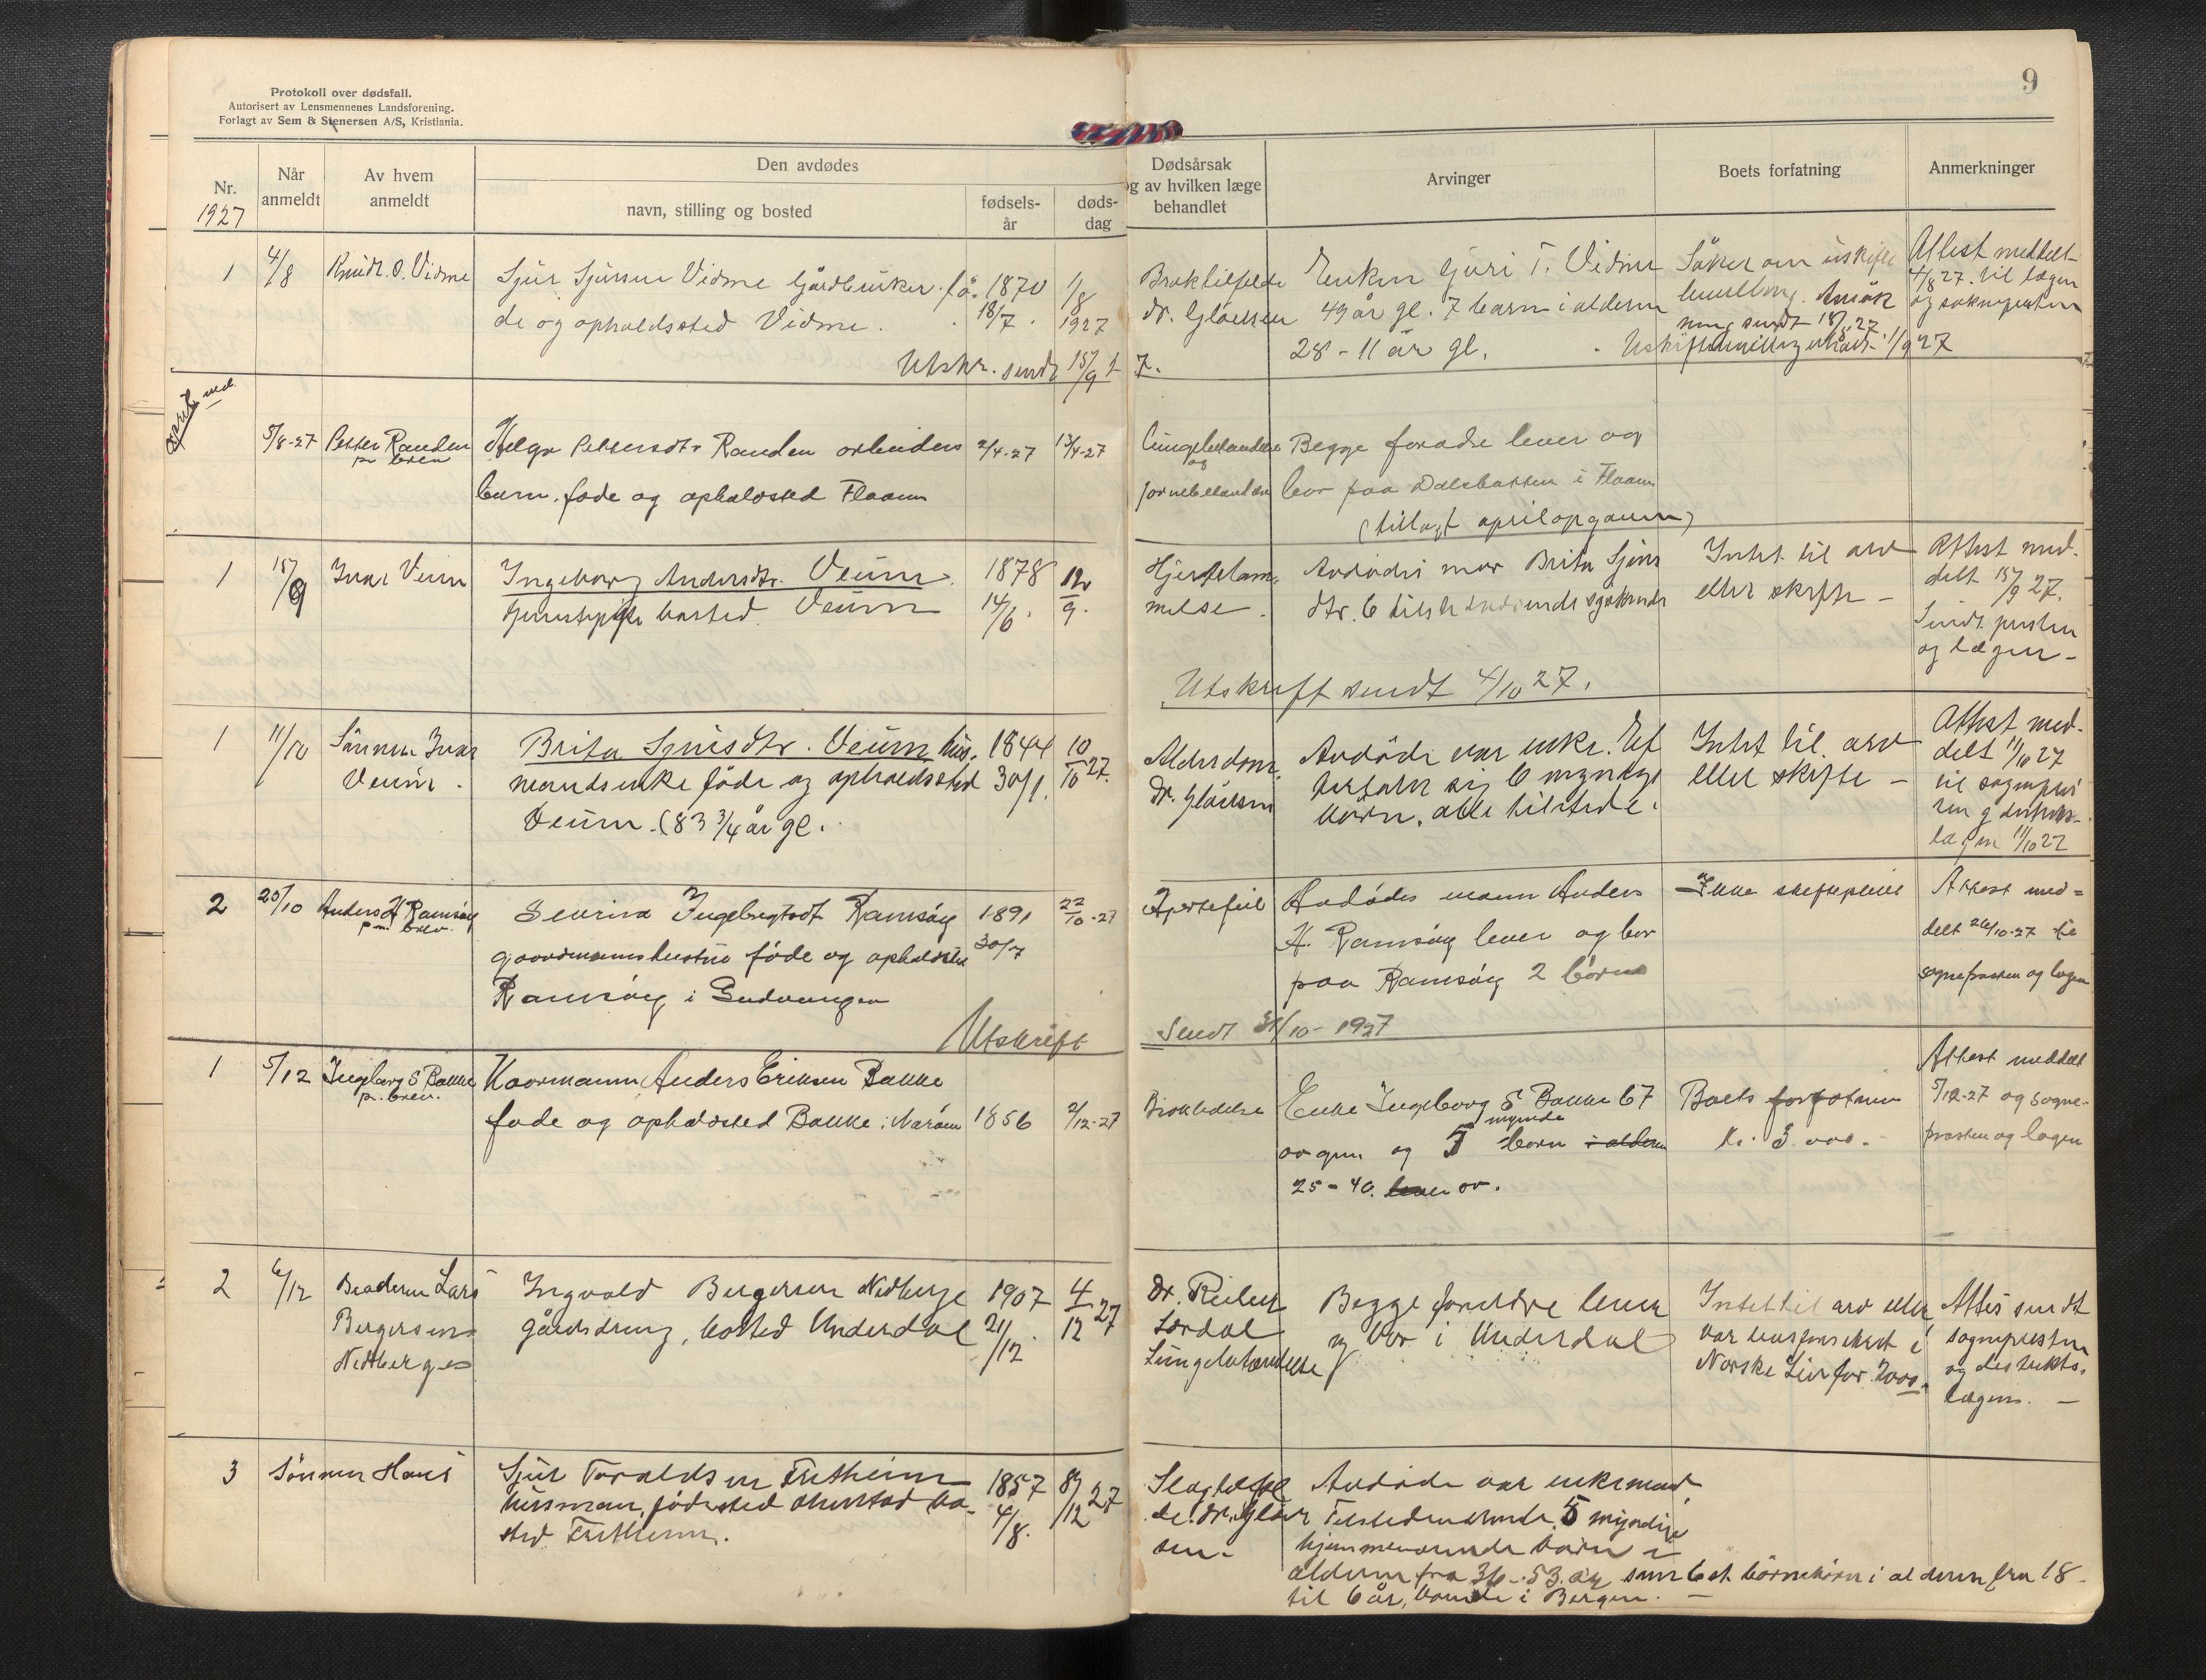 Protokoll over dødsfall.
Autorisert av Lensmennenes Landsforening.
Forlagt av Sem & Stenersen A/S, Kristiania.
9
Nr.
1927
Når
anmeldt
Av hvem
anmeldt
Den avdødes
navn, stilling og bosted
fødsels-
år
døds-
dag
Dødsårsak
og av hvilken læge
behandlet
Arvinger
Boets forfatning
Anmerkninger
1
4/8
Knut O. Vidme
Sjur Sjursen Vidme Gårdbruker. fø-
de og opholdssted Vidme.
1870
18/7.
1/8
1927
dr. Glaersen
Enken Guri T. Vidme
49 år gl. 7 barn i alderen
28 - 11 år gl.
Søker om uskifte
sendt 18/8 27.
1/9 27
Attest meddelt
4/8 27. til lægen
og soknepresten
Utskr. sendt 15/9 27.
April
5/8-27
Petter Randen
pr brev
Helga Pettersdtr Randen arbeiders
barn. føde og opholdssted Flaam
2/4-27
13/4-27
Lungebetændelse
og
Begge foradre lever og
bor paa Dalsbotten i Flaam
(tillagt aprilopgaven)
1
15/9
Ivar Veum
Ingeborg Andersdtr. Veum.
bosted Veum
1878
14/6.
12/9.
Hjertelam-
melse.
Avdødes mor Brita Sjurs
dtr. 6 tilstedeværende søskende
Intet til arv
eller skifte -
Attest med-
delt 15/9 27.
Sendt presten
og lægen -
Utskrift sendt 4/10 27.
1
11/10
Sønnen Ivar
Veum.
Brita Sjursdtr. Veum hus-
mandsenke føde og opholdssted
Veum. (83 3/4 år gl.
1844
30/1.
10/10 27.
Alderdom.
dr. Glaersen
Avdøde var enke. Ef
terlater sig 6 myndige
børn. alle tilstede.
Intet til arv
eller skifte -
Attest med-
delt 11/10 27
til sognepres
ten og distrikts-
lægen 11/10 27
2
25/10
Anders H Ramsøy
pr. brev.
Severina Ingebrigtsdt Ramsøy
gaardmannshustru føde og opholdssted
Ramsøy i Gudvangen
1891
30/7
22/10-27
Hjertefeil
Avdødes mann Anders
H. Ramsøy lever og bor
paa Ramsøy 2 børn
Ikke skiftepleie
Attest med=
delt 26/10-27 til
sognepresten og lægen
Utskrift
Sendt 31/10-1927
1
5/12
Ingeborg S Bakke
pr. brev.
Kaarmann Anders Eriksen Bakke
føde og opholdssted Bakke i Nærøen
1856
2/12-27
Enke Ingeborg S Bakke 67
aar gm. og 5 myndie børn i alderen
25-40. lever av.
Boets forfatning
Kr. 3 000.-
Attest meddelt
5/12-27 og sogne-
presten og lægen
2
6/12
Broderen Lars
Bergersen
Nedberge
Ingvald Bergersen Nedberge
gårdsdreng, bosted Underdal
1907
21/12.
4/12 27
Dr. Reeler
Lærdal
Lungebetændelse
Begge foreldre lever
og bor i Underdal
Intet til arv eller
var livsforsikret i
Norske Liv for 2000.
Attes sendt
sognepresten
og distrikts-
lægen. -
3
Sønnen Hans
Sjur Toraldsen Fretheim
husman, fødested Ohnstad bo-
sted Fretheim.
1857
4/8.
8/12 27
Slagtilfæl
de. dr. Glaer
sen.
Avdøde var enkemand
Tilstedeværende 5 myndige
hjemmeværende børn i
alderen fra 36-53 år, samt 6 st. børnebørn i alderen fra 18-
til 6 år, boende i Bergen. -